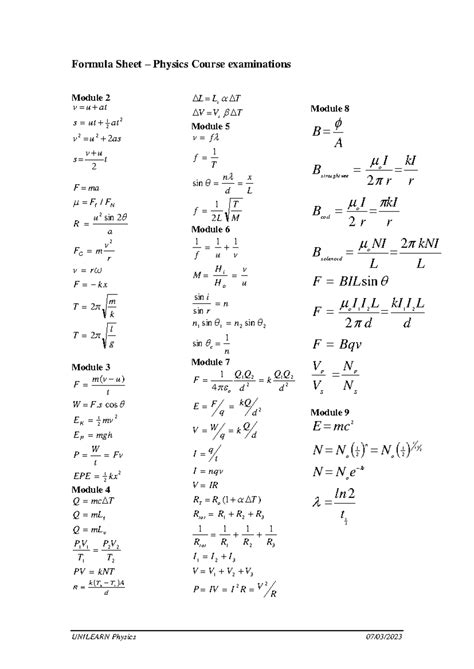 Formula Sheet – Physics Course examinations
Module 2
v = u + at
s = ut + ½ at²
v² = u² + 2as
s = (v + u)/2 t
F = ma
μ = F_f / F_N
R = u² sin 2θ / a
F_C = m v²/r
v = rω
F = − kx
T = 2π √(m/k)
T = 2π √(l/g)
Module 3
F = m(v − u)/t
W = F.s cos θ
E_K = ½ mv²
E_P = mgh
P = W/t = Fv
EPE = ½ kx²
Module 4
Q = mcΔT
Q = mL_f
Q = mL_v
P₁V₁/T₁ = P₂V₂/T₂
PV = kNT
R = k(T_h − T_c)A / d
ΔL = L_o α ΔT
ΔV = V_o β ΔT
Module 5
v = fλ
f = 1/T
sin θ = nλ/d = x/L
f = 1/2L √(T/M)
Module 6
1/f = 1/u + 1/v
M = H_i/H_o = v/u
sin i / sin r = n
n₁ sin θ₁ = n₂ sin θ₂
sin θ_c = 1/n
Module 7
F = 1/4πε_o Q₁Q₂/d² = k Q₁Q₂/d²
E = F/q = kQ/d²
V = W/q = k Q/d
I = q/t
I = nqv
V = IR
R_T = R_o (1 + α ΔT)
R_tot = R₁ + R₂ + R₃
1/R_tot = 1/R₁ + 1/R₂ + 1/R₃
I₁ = I₂ + I₃
V = V₁ + V₂ + V₃
P = IV = I² R = V²/R
Module 8
B = φ/A
B_straight wire = μ_o I / 2π r = kI/r
B_coil = μ_o I / 2 r = πkI / r
B_solenoid = μ_o NI / L = 2π kNI / L
F = BIL sin θ
F = μ_o I₁ I₂ L / 2π d = kI₁ I₂ L / d
F = Bqv
V_p/V_s = N_p/N_s
Module 9
E = mc²
N = N_o (½)ⁿ = N_o (½)^(t/t_½)
N = N_o e^(−λt)
λ = ln2 / t_½
UNILEARN Physics 07/03/2023